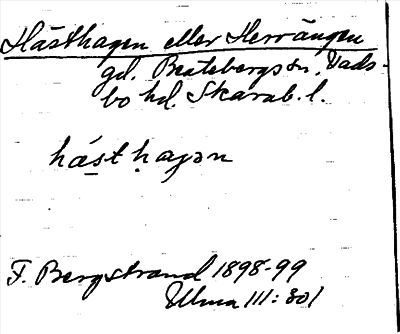 Hästhagen eller Herrängen
gd. Beatebergs sn. Vads-
bo hd. Skarab. l.
hä́st hagən
F. Bergstrand 1898-99
Ulma 111: 801